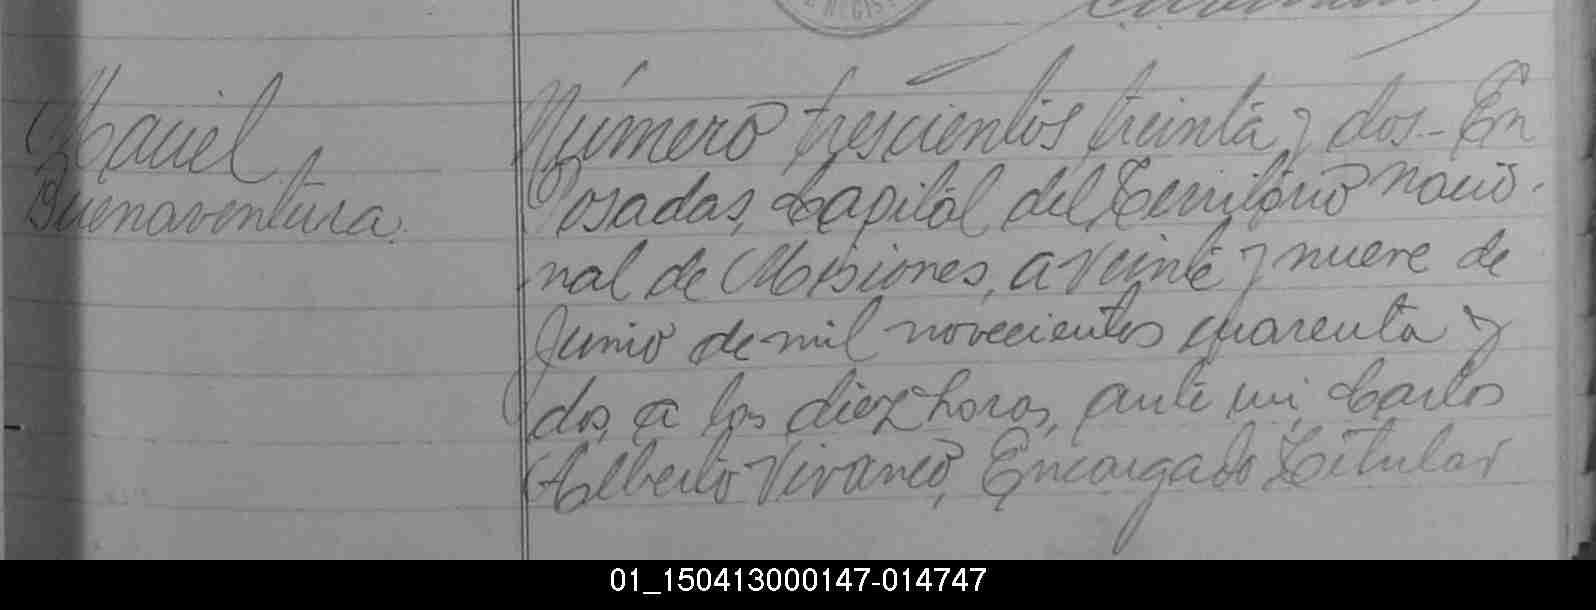 Maciel
Buenaventura.
Número trescientos treinta y dos.- En
Posadas, Capital del Territorio nacio-
nal de Misiones, a veinte y nueve de
Junio de mil novecientos cuarenta y
dos, a las diez horas, ante mi, Carlos
Alberto Vivanco, Encargado Titular
01_150413000147-014747